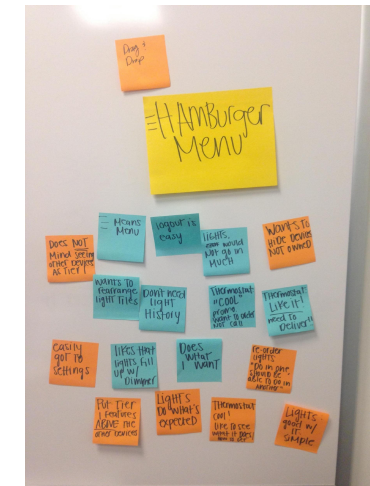 Drag +
Drop
HAMBurger
Menu
Means
Menu
logout is
easy
LIGHTS,
would
Not go in
MUCH
Wants To
HIDE Devices
NOT owned
Does NOT
Mind seeing
other Devices
AS Tier 1
wants to
rearrange
light Tiles
Don't need
LIGHT
History
Thermostat
"COOL"
promo
want to
Thermostat
LIKE IT!
need to
Deliver
easily
got to
settings
likes that
lights fill
up w/
Dimmer
Does
what
I want
re-order
lights:
"Do in one,
should be
able to do in
another"
Put Tier
1 Features
ABOVE
other Devices
LIGHTS
Do what's
expected
Thermostat
cool!
like to see
what it does
LIGHTS
good w/
it
simple